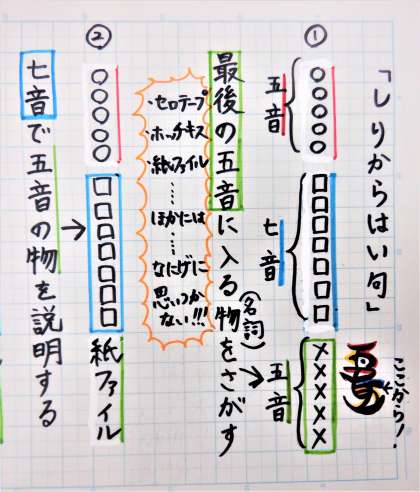 「しりからはい句」
ここから!
①
○○○○○
□□□□□□□
×××××
五音
七音
五音
最後の五音に入る物をさがす
(名詞)
・セロテープ
・ホッチキス
・紙ファイル
……
ほかには
……
なにげに
思いつか
ない!!!
②
○○○○○
□□□□□□□
紙ファイル
七音で五音の物を説明する